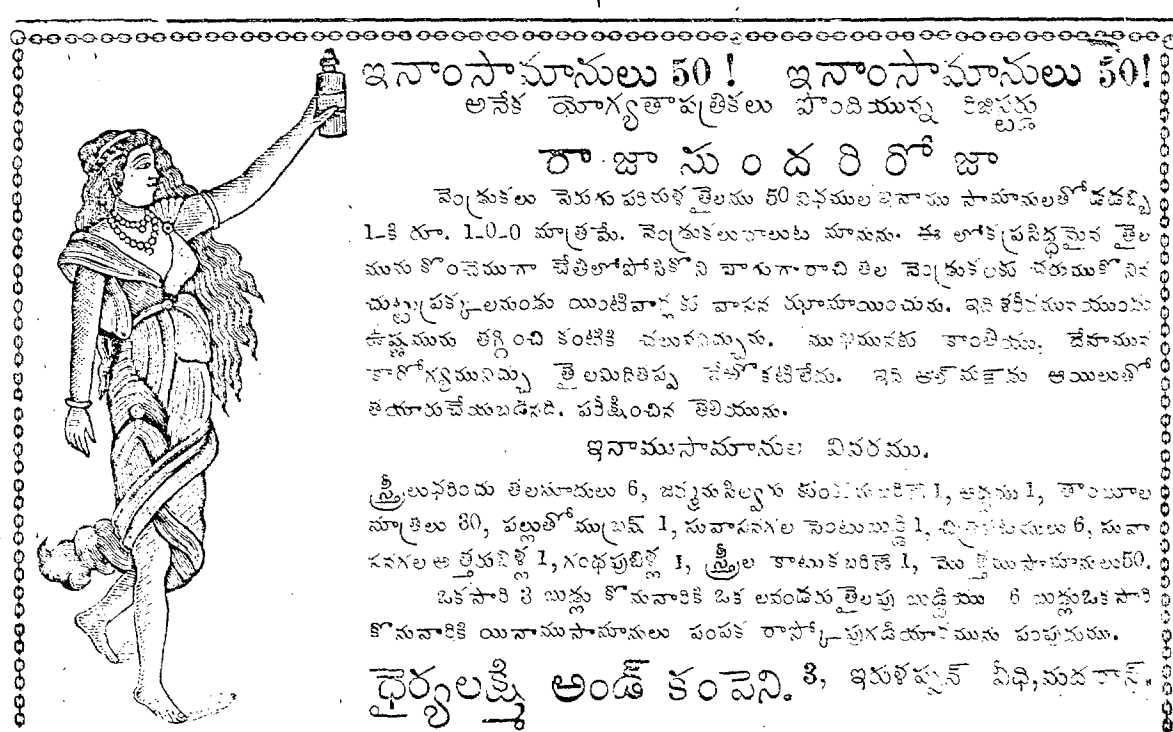 ఇనాంసామానులు 50! ఇనాంసామానులు 50!
అనేక యోగ్యతాపత్రికలు పొందియున్న రిజిస్టర్డు
రాజాసుందరిరోజా
వెంట్రుకలు పెరుగు పరిమళ తైలము 50 విధముల ఇనాము సామానులతో డడబ్బి
1-కి రూ. 1-0-0 మాత్రమే. వెంట్రుకలురాలుట మానును. ఈ లోకప్రసిద్ధమైన తైల
మును కొంచెముగా చేతిలోపోసికొని బాగుగారాచి తల వెంట్రుకలకు చరుముకొనిన
చుట్టుప్రక్కలనుండు యింటివార్లకు వాసన ఝామాయించును. ఇది శరీరమునయుండు
ఉష్ణమును తగ్గించి కంటికి చలువనిచ్చును. ముఖమునకు కాంతియు, దేహమున
కారోగ్యమునిచ్చు తైలమిదితప్ప వేఱొకటిలేదు. ఇది ఆయిలుతో
తయారుచేయబడినది. పరీక్షించిన తెలియును.
ఇనాముసామానుల వివరము.
స్త్రీలుధరించు తలసూదులు 6, జర్మనుసిల్వరు కుంకుమబరిణె 1, అద్దము 1, తాంబూల
మాత్రలు 30, పల్లుతోముబ్రష్ 1, సువాసనగల సెంటుబుడ్డి 1, చిత్రపటములు 6, సువా
సనగల అత్తరుబిళ్ల 1, గంధపుబిళ్ల 1, స్త్రీల కాటుక బరిణె 1, మొత్తముసామానులు 50.
ఒకసారి 3 బుడ్లు కొనువారికి ఒక లవండరు తైలపు బుడ్డియు 6 బుడ్లుఒకసారి
కొనువారికి యినాముసామానులు పంపక రాస్కోపుగడియారమును పంపుదుము.
ధైర్యలక్ష్మి అండ్ కంపెని. 3, ఇరుళప్పన్ వీధి, మదరాస్.